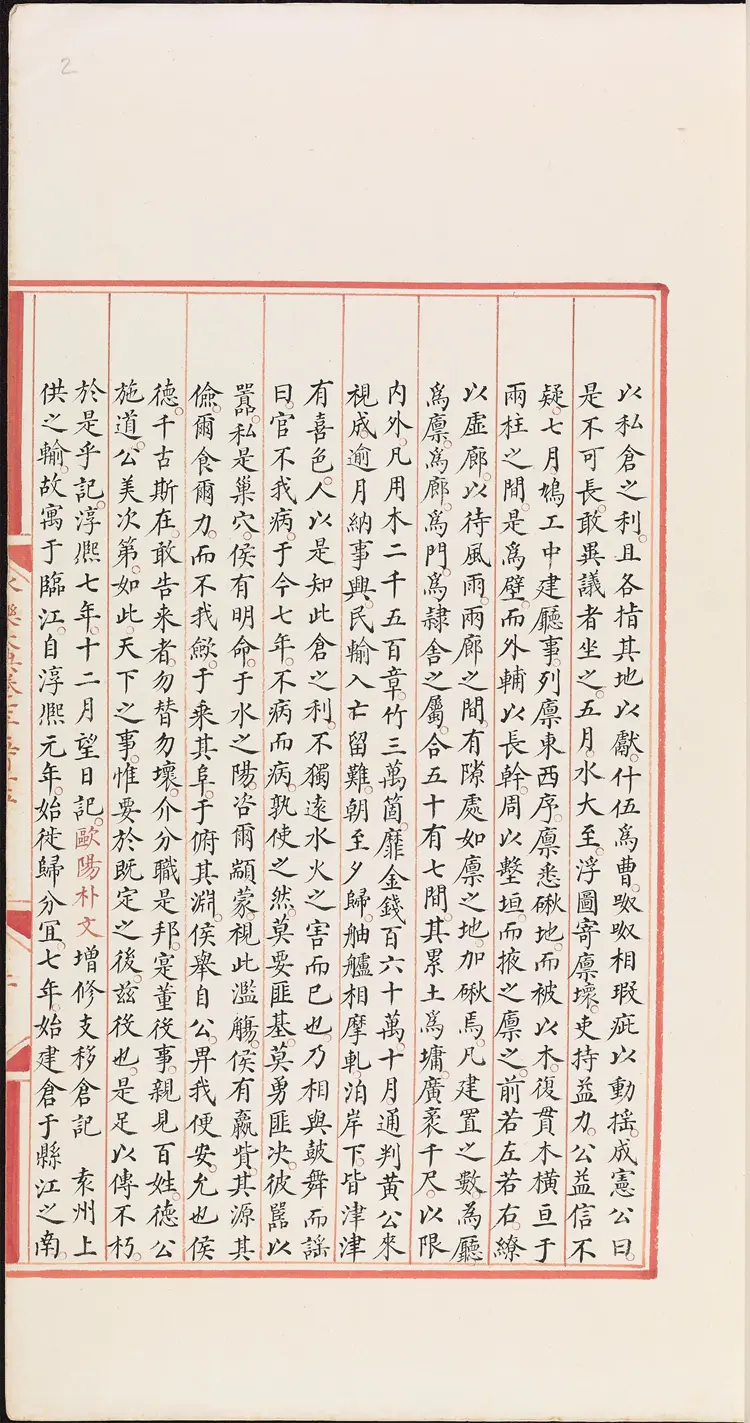 2
以私倉之利。且各指其地以獻。什伍爲曹。呶呶相瑕疵以動揺。成憲公曰。
是不可長。敢異議者坐之。五月。水大至。浮圖寄廪壞。吏持益力。公益信不
疑。七月鳩工中建廳事。列廪東西序。廪悉礅地。而被以木。復貫木横亘于
兩柱之間。是爲壁。而外輔以長幹。周以墼垣。而掖之廪之。前若左若右。繚
以虚廊。以待風雨。兩廊之間。有隙處如廪之地。加礅焉。凡建置之數。爲廳
爲廪。爲廊。爲門。爲隷舎之屬。合五十有七間。其累土爲墉。廣袤千尺。以限
内外。凡用木二千五百章。竹三萬箇。靡金錢百六十萬。十月通判黄公來
視成。逾月納事興。民輸入亡留難。朝至夕歸。舳艫相摩軋。泊岸下。皆津津
有喜色。人以是知此倉之利。不獨遠水火之害而已也。乃相與鼓舞而謡
曰。官不我病。于今七年。不病而病。孰使之然。莫要匪基。莫勇匪决。彼嚚以
嚚。私是巢穴。侯有明命。于水之陽。咨爾顓蒙。視此濫觴。侯有羸貲。其源其
儉。爾食爾力。而不我歛。于乗其阜。于俯其淵。侯舉自公。畀我便安。允也侯
德。千古斯在。敢告来者。勿替勿壞。介分職是邦。寔董役事。親見百姓。德公
施道。公美次第。如此。天下之事。惟要於既定之後。兹役也。是足以傳不朽。
於是乎記。淳熈七年。十二月望日記。歐陽朴文增修支移倉記 袁州上
供之輸。故寓于臨江。自淳熈元年。始徙歸分宜。七年。始建倉于縣江之南。